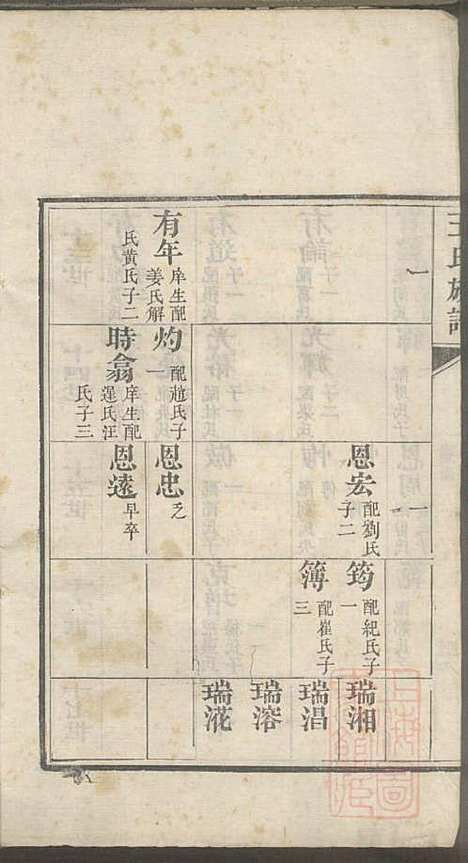 王氏族譜
一
有年 庠生配姜氏解氏黃氏子二
灼 配趙氏子一
時翕 庠生配暹氏汪氏子三
一
恩宏 配劉氏子二
恩忠 乏
恩遠 早卒
筠 配紀氏子一
簿 配崔氏子三
瑞湘
瑞淐
瑞溶
瑞漎